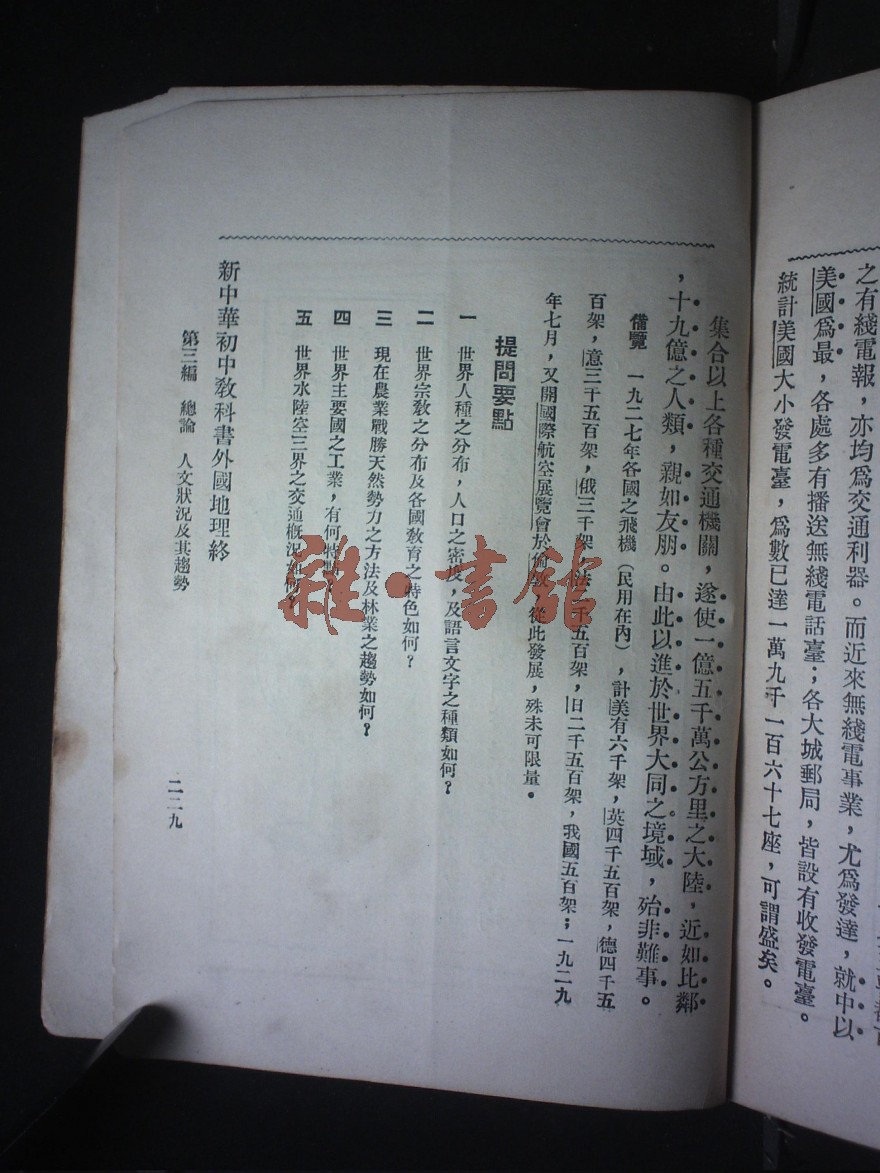 之有綫電報，亦均爲交通利器。而近來無綫電事業，尤爲發達，就中以
美國爲最，各處多有播送無綫電話臺；各大城郵局，皆設有收發電臺。
統計美國大小發電臺，爲數已達一萬九千一百六十七座，可謂盛矣。
集合以上各種交通機關，遂使一億五千萬公方里之大陸，近如比鄰
，十九億之人類，親如友朋。由此以進於世界大同之境域，殆非難事。
備覽 一九二七年各國之飛機（民用在內），計美有六千架，英四千五百架，德四千五
百架，意三千五百架，俄三千架，法二千五百架，日二千五百架，我國五百架；一九二九
年七月，又開國際航空展覽會於倫敦，從此發展，殊未可限量。
提問要點
一 世界人種之分布，人口之密度，及語言文字之種類如何？
二 世界宗教之分布及各國教育之特色如何？
三 現在農業戰勝天然勢力之方法及林業之趨勢如何？
四 世界主要國之工業，有何特點？
五 世界水陸空三界之交通概況如何？
新中華初中教科書外國地理終
第三編 總論 人文狀況及其趨勢
二二九
雜·書館